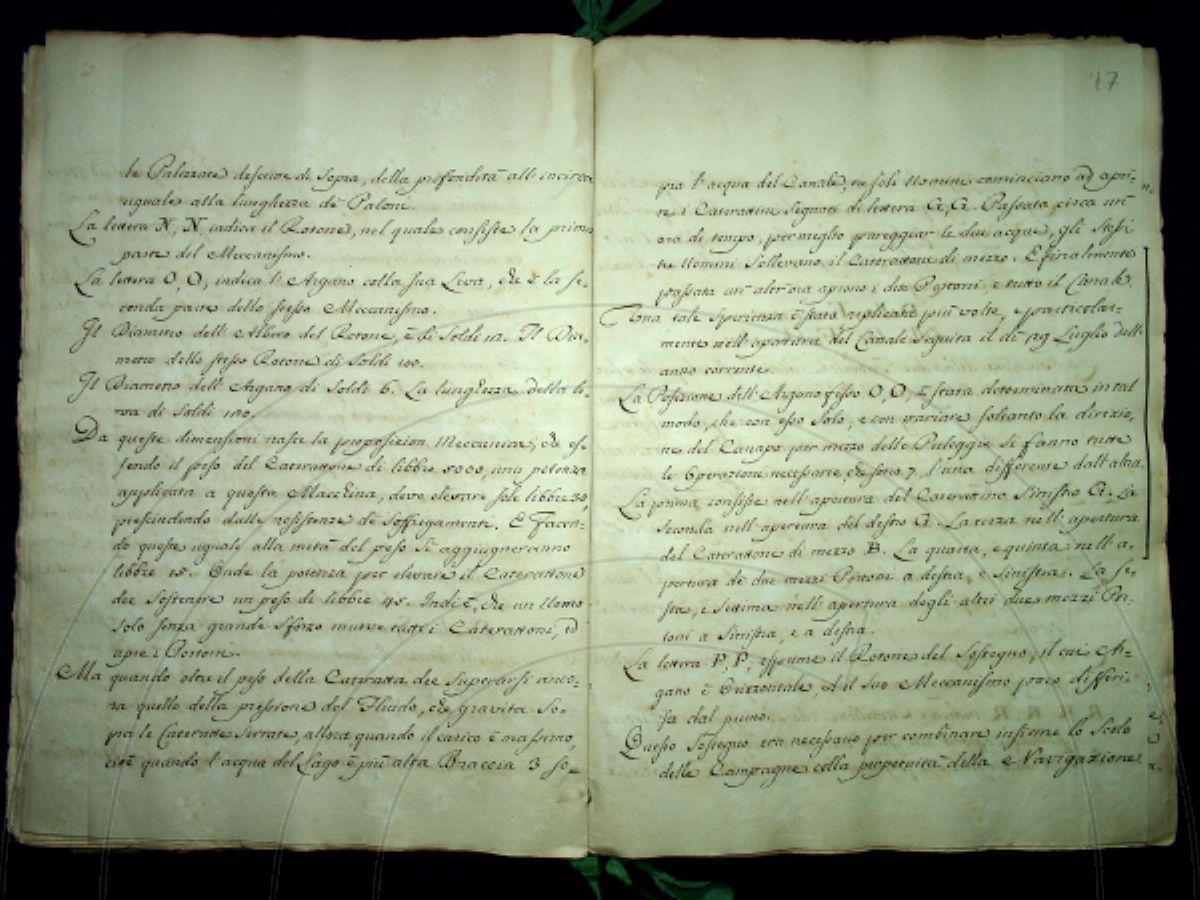 le Palizzate descritte di Sopra, della profondità all'incirca
uguale alla lunghezza de Paloni.
La lettera N, N, indica il Rotone, nel quale consiste la prima
parte del Meccanismo.
La lettera O, O, indica l'Argano colla sua Leva, che è la se-
conda parte dello stesso Meccanismo.
Il Diametro dell'Albero del Rotone, è di Soldi 12. Il Dia-
metro dello stesso Rotone di Soldi 140.
Il Diametro dell'Argano di Soldi 6. La lunghezza della le-
va di Soldi 120.
Da queste dimensioni nasce la proposizion Meccanica, che es-
sendo il peso del Caterattone di libbre 8000, una potenza
applicata a questa Macchina, deve elevare sole libbre 34
prescindendo dalle resistenze di Soffregamento. E Facen-
do queste uguali alla metà del peso si aggiugneranno
libbre 15. Onde la potenza per elevare il Caterattone
dee Sostenere un peso di libbre 45. Indi è, che un Uomo
solo senza grande sforzo muove tutti i Caterattoni, ed
apre i Portoni.
Ma quando oltre il peso della Cateratta dee Superarsi anco-
ra quello della pressione del Fluido, che gravita so-
pra le Cateratte Serrate, allora quando il carico è massimo,
cioè quando l'acqua del Lago è più alta Braccia 3 so-
17
pra l'acqua del Canale, tre soli Uomini cominciano ad apri-
re i Caterattini segnati di lettera G, G. Passata circa un'
ora di tempo, per meglio pareggiar le due acque, gli stessi
tre Uomini Sollevano il Caterattone di mezzo. E finalmente
passata un'altr'ora aprono i due Portoni, e tutto il Canale.
Una tale sperienza è stata replicata più volte, e particolar-
mente nell'apertura del Canale seguita il dì 29 Luglio dell'
anno corrente.
La Posizione dell'Argano fisso O, O, è stata determinata in tal
modo, che con esso solo, e con variare soltanto la direzio-
ne del Canapo per mezzo delle Pulegge si fanno tutte
le Operazioni necessarie, che sono 7. l'una differente dall'altra.
La prima consiste nell'apertura del Caterattino Sinistro G. La
seconda nell'apertura del destro G. La terza nell'apertura
del Caterattone di mezzo B. La quarta, e quinta nell'a-
pertura de due mezzi Portoni a destra, e sinistra. La se-
sta, e settima nell'apertura degli altri due mezzi Por-
toni a Sinistra, e a destra.
La lettera P, P, esprime il Rotone del Sostegno, il cui Ar-
gano è Orizzontale, ed il suo Meccanismo poco differi-
sce dal primo.
Questo Sostegno era necessario per combinare insieme lo Scolo
delle Campagne colla perpetuità della Navigazione